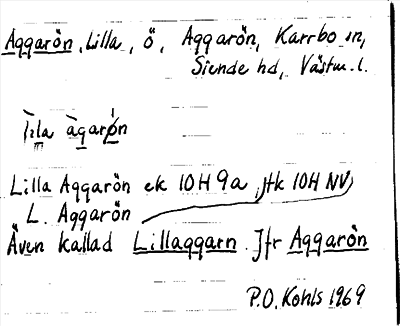 Aggarön, Lilla, ö, Aggarön, Karrbo sn,
Siende hd, Västm. l.
Lilla Aggarön ek 10H9a, jtk 10H NV,
L. Aggarön
Även kallad Lillaggarn. Jfr Aggarön
P.O. Kohls 1969